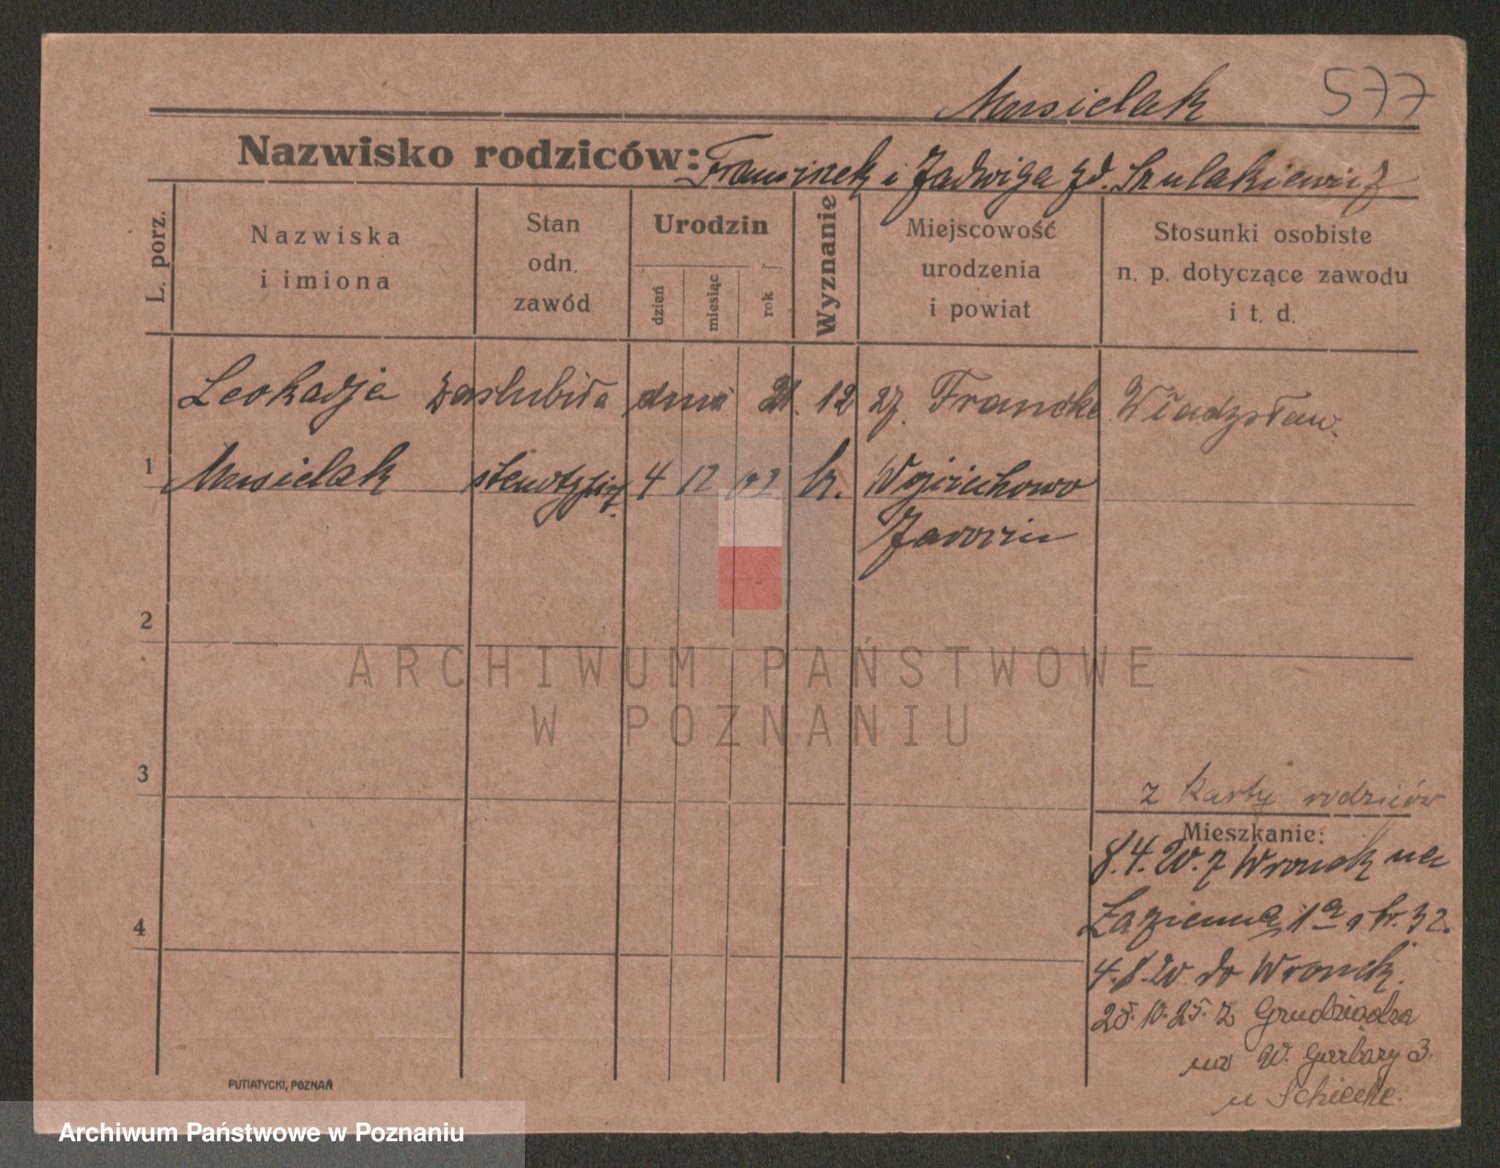 Musielak 577
Nazwisko rodziców: Franciszek i Jadwiga zd. Szulakiewicz
L. porz.
Nazwiska
i imiona
Stan
odn.
zawód
Urodzin
dzień
miesiąc
rok
Wyznanie
Miejscowość
urodzenia
i powiat
Stosunki osobiste
n. p. dotyczące zawodu
i t. d.
Leokadja zaślubiła dnia 21. 12 27. Franckе Władysław.
1 Musielak 4 12 02 Wojciechowo
Jarocin
2
3
4
z karty rodziców
Mieszkanie:
8.4.20. z Wronek na
Łazienną 1a
4.8.20 do Wronek.
25.10.25. z Grudziądza
na W. Garbary 3.
u Schiecke.
PUTIATYCKI, POZNAŃ
ARCHIWUM PAŃSTWOWE
W POZNANIU
Archiwum Państwowe w Poznaniu